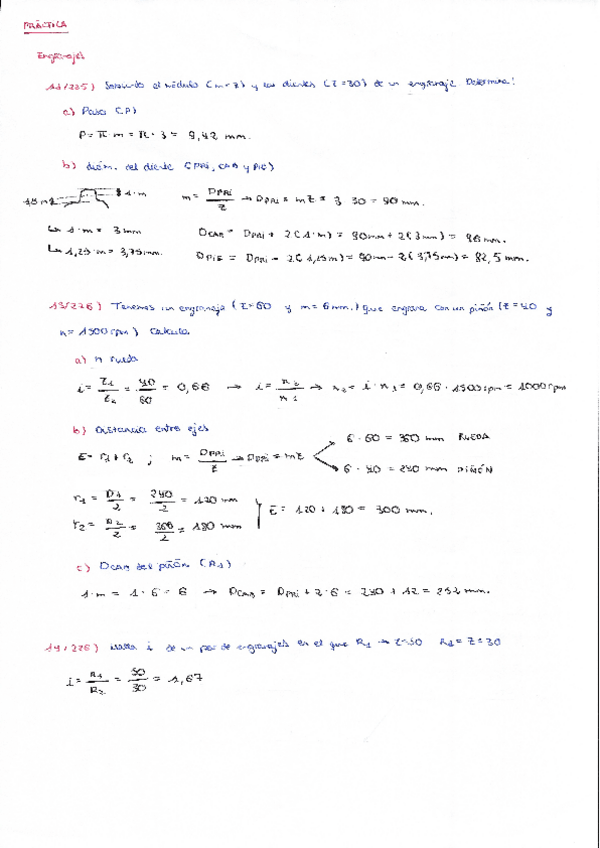 PRÁCTICA
Engranajes
11/225) Sabiendo el módulo (m=3) y los dientes (Z=30) de un engranaje. Determina:
a) Paso (P)
P = π · m = π · 3 = 9,42 mm.
b) diám. del diente (PRI, CAB y PIE)
1·m
m = DPRI / Z → DPRI = mZ = 3 · 30 = 90 mm.
↳ 1·m = 3mm
DCAB = DPRI + 2(1·m) = 90mm + 2(3mm) = 96 mm.
↳ 1,25·m = 3,75mm.
DPIE = DPRI - 2(1,25m) = 90mm - 2(3,75mm) = 82,5 mm.
13/226) Tenemos un engranaje (Z=60 y m=6mm.) que engrana con un piñón (Z=40 y
n = 1500 rpm) Calcula.
a) n rueda
i = Z1 / Z2 = 40 / 60 = 0,66 → i = n2 / n1 → n2 = i · n1 = 0,66 · 1500 rpm = 1000 rpm
b) Distancia entre ejes
6 · 60 = 360 mm RUEDA
E = r1 + r2 ; m = DPRI / Z → DPRI = mZ
6 · 40 = 240 mm PIÑÓN
r1 = D1 / 2 = 240 / 2 = 120 mm
E = 120 + 180 = 300 mm.
r2 = D2 / 2 = 360 / 2 = 180 mm
c) DCAB del piñón (R1)
1·m = 1 · 6 = 6 → DCAB = DPRI + 2 · 6 = 240 + 12 = 252 mm.
14/226) Halla i de un par de engranajes en el que R1 → Z=50 R2 = Z = 30
i = R1 / R2 = 50 / 30 = 1,67